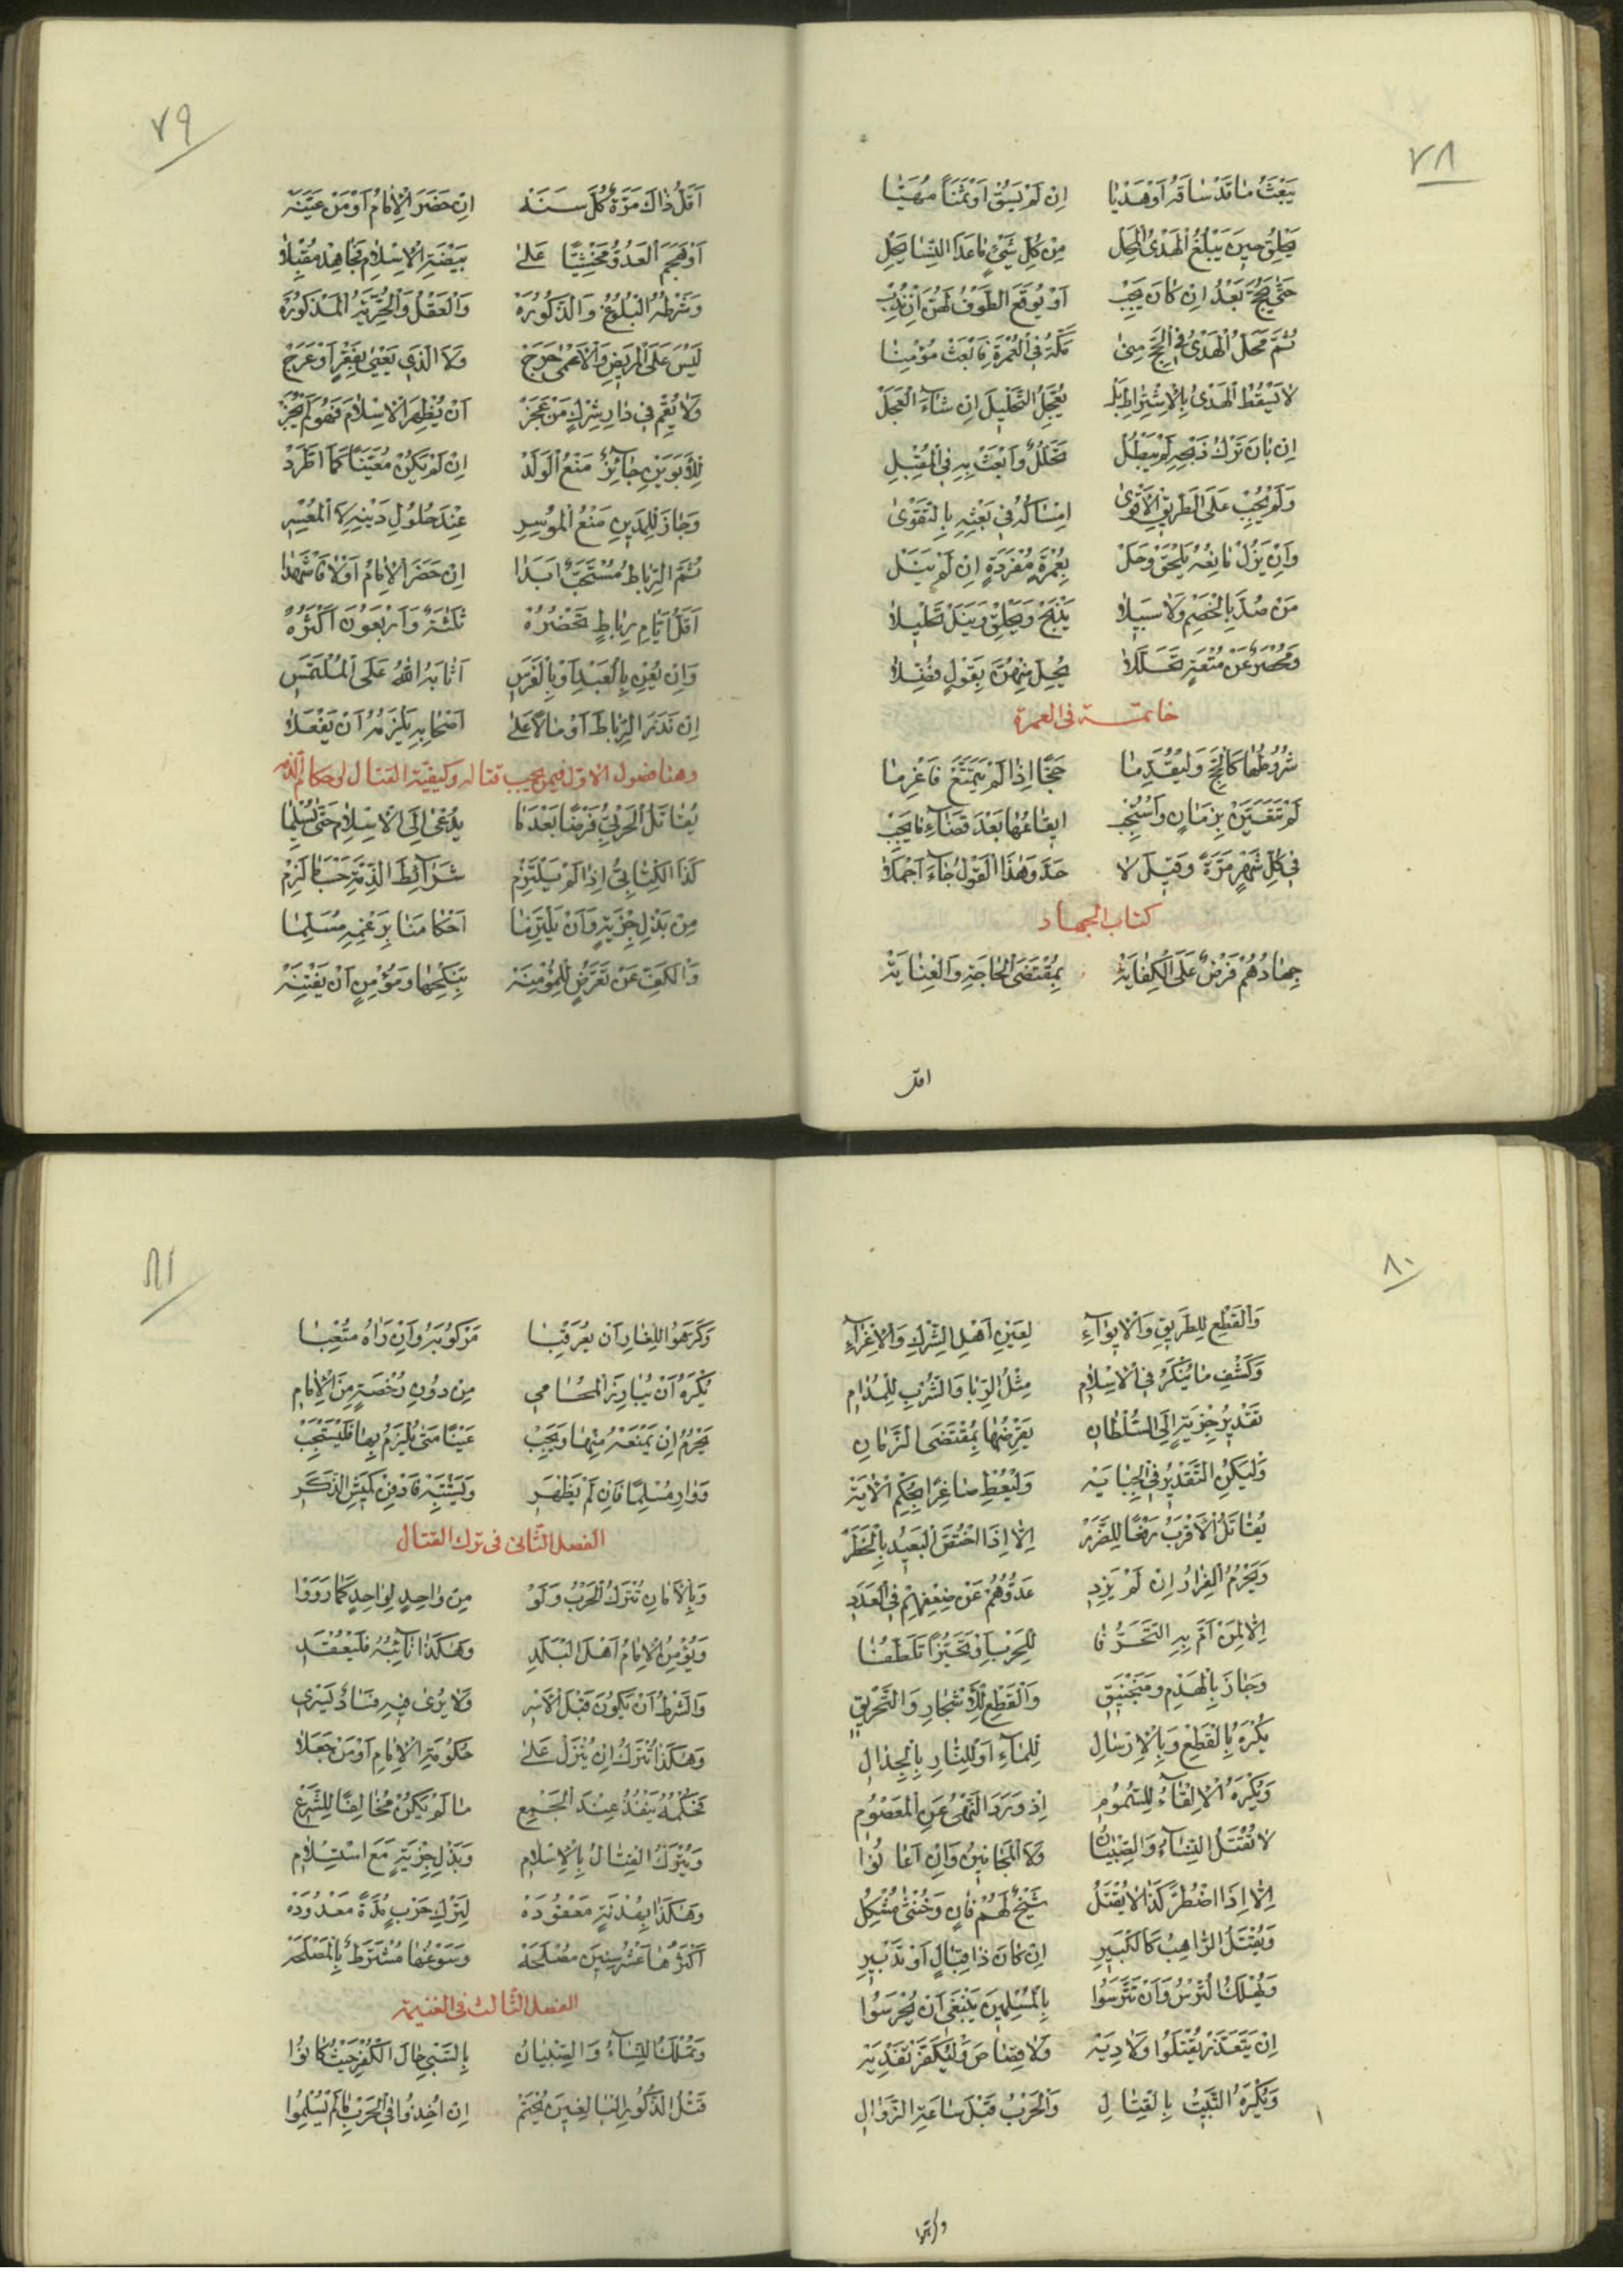 ٧٨
يَبْعَثُ مٰا قَدْ سٰاقَهُ اَوْ هَدْيًا اِنْ لَمْ يَسُقْ اَوْ ثَمَنًا مُهَيَّٰا
يَحْلِقُ حِينَ يَبْلُغُ الْهَدْىُ الْمَحِلْ مِنْ كُلِّ شَيْءٍ مٰا عَدَا النِّسٰا يَحِلْ
حَتّٰى يَحُجَّ بَعْدُ اِنْ كٰانَ يَجِبْ اَوْ يُوقَعَ الطَّوْفُ لَهُنَّ اِنْ نُدِبْ
ثُمَّ مَحَلُّ الْهَدْىِ فِى الْحَجِّ مِنىٰ مَكَّةُ فِى الْعُمْرَةِ فَابْعَثْ مُؤْمِنٰا
لٰا يَسْقُطُ الْهَدْىُ بِالْاِشْتِرٰاطِ بَلْ يُعَجِّلُ التَّحْلِيلَ اِنْ شٰاءَ الْعَجَلْ
اِنْ بٰانَ تَرْكُ ذَبْحِهِ لَمْ يَبْطُلْ تَحَلُّلٌ وَابْعَثْ بِهِ فِى الْمُقْبِلِ
وَلَمْ يَجِبْ عَلَى الطَّرِيقِ الْاَقْوىٰ اِمْسٰاكُهُ فِى بَعْثِهِ بِالتَّقْوىٰ
وَاِنْ يَزُلْ مٰانِعُهُ يَلْحَقْ وَحَلْ بِعُمْرَةٍ مُفْرَدَةٍ اِنْ لَمْ يَنَلْ
مَنْ صُدَّ بِالْخَصْمِ وَلٰا سَبِيلٰا يَذْبَحْ وَيَحْلِقْ وَيَنَلْ تَحْلِيلٰا
وَمُحْصَرٌ عَنْ مُتْعَةٍ تَحَلَّلٰا يَحِلُّ مِنْهُنَّ بِقَوْلٍ فُضِّلٰا
خاتمة فى العمرة
شُرُوطُهٰا كَالْحَجِّ وَلْيُقَدِّمٰا حَجًّا اِذٰا لَمْ يَتَمَتَّعْ فَاغْرِمٰا
لَمْ تَتَعَيَّنْ بِزَمٰانٍ وَاسْتُحِبْ اِيقٰاعُهٰا بَعْدَ قَضٰاءِ مٰا يَجِبْ
فِى كُلِّ شَهْرٍ مَرَّةً وَقِيلَ لٰا حَدَّ وَهٰذَا الْقَوْلُ جٰاءَ اَجْمَلٰا
كتاب الجهاد
جِهٰادُهُمْ فَرْضٌ عَلَى الْكِفٰايَةْ بِمُقْتَضَى الْحٰاجَةِ وَالْعِنٰايَةْ
اقل
٧٩
اَقَلُّ ذٰاكَ مَرَّةٌ كُلَّ سَنَهْ اِنْ حَضَرَ الْاِمٰامُ اَوْ مَنْ عَيَّنَهْ
اَوْ هَجَمَ الْعَدُوُّ مَخْشِيًّا عَلىٰ بَيْضَةِ الْاِسْلٰامِ فَجٰاهِدْ مُقْبِلٰا
وَشَرْطُهُ الْبُلُوغُ وَالذُّكُورَةْ وَالْعَقْلُ وَالْحُرِّيَّةُ الْمَذْكُورَةْ
لَيْسَ عَلَى الْمَرِيضِ وَالْاَعْمىٰ حَرَجْ وَلَا الَّذِى يَعْيىٰ بِفَقْرٍ اَوْ عَرَجْ
وَلٰا يُقِمْ فِى دٰارِ شِرْكٍ مَنْ عَجَزْ اَنْ يُظْهِرَ الْاِسْلٰامَ فَهُوَ لَمْ يَجُزْ
لِلْاَبَوَيْنِ جٰائِزٌ مَنْعُ الْوَلَدْ اِنْ لَمْ يَكُنْ مُعَيَّنًا كَمَا اطَّرَدْ
وَجٰازَ لِلْمَدِينِ مَنْعُ الْمُوسِرِ عِنْدَ حُلُولِ دَيْنِهِ لَا الْمُعْسِرِ
ثُمَّ الرِّبٰاطُ مُسْتَحَبٌّ اَبَدٰا اِنْ حَضَرَ الْاِمٰامُ اَوْ لٰا فَاشْهَدٰا
اَقَلُّ اَيّٰامِ رِبٰاطٍ تَحْضُرُهْ ثَلٰثَةٌ وَاَرْبَعُونَ اَكْثَرُهْ
وَاِنْ يُعِنْ بِالْعَبْدِ اَوْ بِالْفَرَسِ اَثٰابَهُ اللهُ عَلَى الْمُلْتَمَسِ
اِنْ نَذَرَ الرِّبٰاطَ اَوْ مٰالًا عَلىٰ اَصْحٰابِهِ يَلْزَمُهُ اَنْ يَفْعَلٰا
وهنا فصول الاول فيمن يجب قتاله وكيفية القتال واحكام الذمه
يُقٰاتَلُ الْحَرْبِيُّ فَرْضًا بَعْدَ مٰا يُدْعىٰ اِلَى الْاِسْلٰامِ حَتّٰى يُسْلِمٰا
كَذَا الْكِتٰابِيُّ اِذٰا لَمْ يَلْتَزِمْ شَرٰائِطَ الذِّمَّةِ حَسْبَمٰا لَزِمْ
مِنْ بَذْلِ جِزْيَةٍ وَاَنْ يَلْتَزِمٰا اَحْكٰامَنٰا بِرَغْمِهِ مُسَلِّمٰا
وَالْكَفِّ عَنْ تَعَرُّضٍ لِلْمُؤْمِنَةْ بِنَكْحِهٰا وَمُؤْمِنٍ اَنْ يَفْتِنَهْ
٨٠
وَالْقَطْعِ لِلطَّرِيقِ وَالْاِيوٰاءِ لِعَيْنِ اَهْلِ الشِّرْكِ وَالْاِغْرٰاءِ
وَكَشْفِ مٰا يُنْكَرُ فِى الْاِسْلٰامِ مِثْلُ الرِّبٰا وَالشُّرْبِ لِلْمُدٰامِ
تَقْدِيرُ جِزْيَةٍ اِلَى السُّلْطٰانِ يَفْرِضُهٰا بِمُقْتَضَى الزَّمٰانِ
وَلْيَكُنِ التَّقْدِيرُ فِى الْجِبٰايَةْ وَلْيُعْطِ صٰاغِرًا بِحُكْمِ الْاٰيَةْ
يُقٰاتَلُ الْاَقْرَبُ رَفْعًا لِلضَّرَرْ اِلّٰا اِذَا اخْتَصَّ الْبَعِيدُ بِالْخَطَرْ
وَيَحْرُمُ الْفِرٰارُ اِنْ لَمْ يَزِدِ عَدُوُّهُمْ عَنْ ضِعْفِهِمْ فِى الْعَدَدِ
اِلّٰا لِمَنْ اَمَّ بِهِ التَّحَرُّفٰا لِلْحَرْبِ اَوْ تَحَيُّزًا تَلَطُّفٰا
وَجٰازَ بِالْهَدْمِ وَمَنْجَنِيقِ وَالْقَطْعِ لِلْاَشْجٰارِ وَالتَّحْرِيقِ
يُكْرَهُ بِالْقَطْعِ وَبِالْاِرْسٰالِ لِلْمٰاءِ اَوْ لِلنّٰارِ بِالْجِدٰالِ
وَيُكْرَهُ الْاِلْقٰاءُ لِلسُّمُومِ اِذْ وَرَدَ النَّهْىُ عَنِ الْمَعْصُومِ
لٰا تُقْتَلُ النِّسٰاءُ وَالصِّبْيٰانُ وَلَا الْمَجٰانِينُ وَاِنْ اَعٰانُوا
اِلّٰا اِذَا اضْطُرَّ كَذٰا لٰا يُقْتَلُ شَيْخٌ لَهُمْ فٰانٍ وَخُنْثىٰ مُشْكِلُ
وَيُقْتَلُ الرّٰاهِبُ كَالْكَبِيرِ اِنْ كٰانَ ذٰا قِتٰالٍ اَوْ تَدْبِيرِ
وَيُهْلَكُ التُّرْسُ وَاَنْ تَتَرَّسُوا بِالْمُسْلِمِينَ يَنْبَغِى اَنْ يُحْرَسُوا
اِنْ يَتَعَذَّرْ يُقْتَلُوا وَلٰا دِيَةْ وَلٰا قِصٰاصَ وَلْيُكَفَّرْ تَفْدِيَةْ
وَيُكْرَهُ التَّبْيِيتُ بِالْقِتٰالِ وَالْحَرْبُ قَبْلَ سٰاعَةِ الزَّوٰالِ
وكرهوا
٨١
وَكَرِهُوا لِلْغٰازِ اَنْ يُعَرْقِبٰا مَرْكُوبَهُ وَاِنْ رَاٰهُ مُتْعِبٰا
يُكْرَهُ اَنْ يُبٰارِزَ الْمُحٰامِى مِنْ دُونِ رُخْصَةٍ مِنَ الْاِمٰامِ
يَحْرُمُ اِنْ يَمْنَعْهُ مِنْهٰا وَيَجِبْ عَيْنًا مَتىٰ يُلْزَمْ بِهٰا فَلْيَسْتَجِبْ
وَوٰارِ مُسْلِمًا فَاِنْ لَمْ يَظْهَرِ وَيَشْتَبِهْ فَادْفِنْ كَمِيشَ الذَّكَرِ
الفصل الثانى فى ترك القتال
وَبِالْاَمٰانِ تُتْرَكُ الْحَرْبُ وَلَوْ مِنْ وٰاحِدٍ لِوٰاحِدٍ كَمٰا رَوَوْا
وَيُؤْمِنُ الْاِمٰامُ اَهْلَ الْبَلَدِ وَهٰكَذٰا نٰائِبُهُ فَلْيَعْقِدِ
وَالشَّرْطُ اَنْ يَكُونَ قَبْلَ الْاَسْرِ وَلٰا يُرىٰ فِيهِ فَسٰادٌ يَسْرِى
وَهٰكَذٰا تُتْرَكُ اِنْ يُنْزَلْ عَلىٰ حُكُومَةِ الْاِمٰامِ اَوْ مَنْ جَعَلٰا
فَحُكْمُهُ يَنْفُذُ عِنْدَ الْجَمْعِ مٰا لَمْ يَكُنْ مُخٰالِفًا لِلشَّرْعِ
وَيُتْرَكُ الْقِتٰالُ بِالْاِسْلٰامِ وَبَذْلِ جِزْيَةٍ مَعَ اسْتِسْلٰامِ
وَهٰكَذٰا بِهُدْنَةٍ مَعْقُودَهْ لِتَرْكِ حَرْبٍ مُدَّةً مَعْدُودَهْ
اَكْثَرُهٰا عَشْرُ سِنِينَ مَصْلَحَهْ وَسَوْغُهٰا مُشْتَرَطٌ بِالْمَصْلَحَهْ
الفصل الثالث فى الغنيمة
وَتُمْلَكُ النِّسٰاءُ وَالصِّبْيٰانُ بِالسَّبْىِ حٰالَ الْكُفْرِ حَيْثُ كٰانُوا
قَتْلُ الذُّكُورِ الْبٰالِغِينَ يُحْتَمْ اِنْ اُخِذُوا فِى الْحَرْبِ مٰا لَمْ يُسْلِمُوا